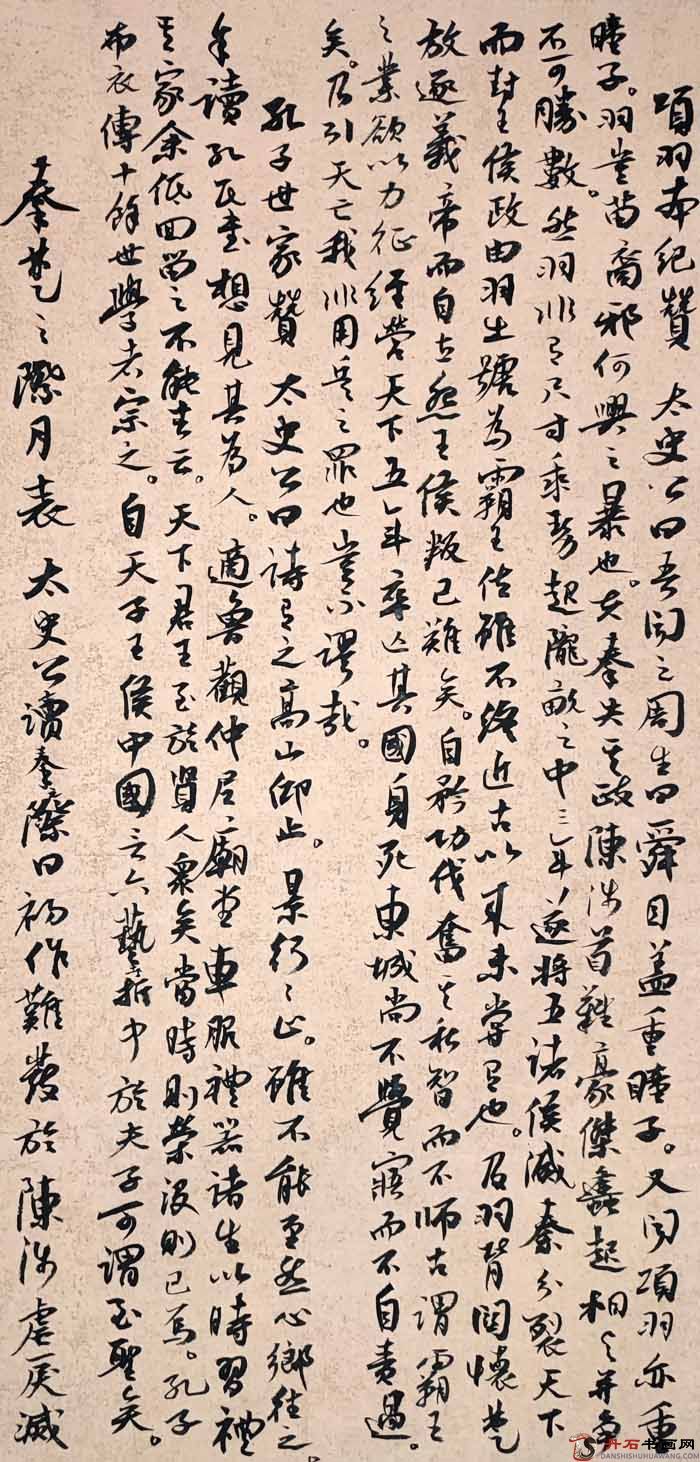 項羽本紀贊 太史公曰吾聞之周生曰舜目蓋重瞳子。又聞項羽亦重
瞳子。羽豈苗裔邪何興之暴也。夫秦失其政陳涉首難豪傑蠭起相與并爭
不可勝數。然羽非有尺寸乘勢起隴畝之中三年遂將五諸侯滅秦分裂天下
而封王侯政由羽出號為霸王位雖不終近古以來未嘗有也。及羽背關懷楚
放逐義帝而自立怨王侯叛已難矣。自矜功伐奮其私智而不師古謂霸王
之業欲以力征經營天下五年卒亡其國身死東城尚不覺寤而不自責過。
矣。乃引天亡我非用兵之罪也豈不謬哉。
孔子世家贊 太史公曰詩有之高山仰止。景行行止。雖不能至然心鄉往之。
余讀孔氏書想見其為人。適魯觀仲尼廟堂車服禮器諸生以時習禮
其家余低回留之不能去云。天下君王至於賢人眾矣當時則榮沒則已焉。孔子
布衣傳十餘世學者宗之。自天子王侯中國言六藝折中於夫子可謂至聖矣。
秦楚之際月表 太史公讀秦際曰初作難發於陳涉虐戾滅
丹石书画网
DANSHISHUHUAWANG.COM